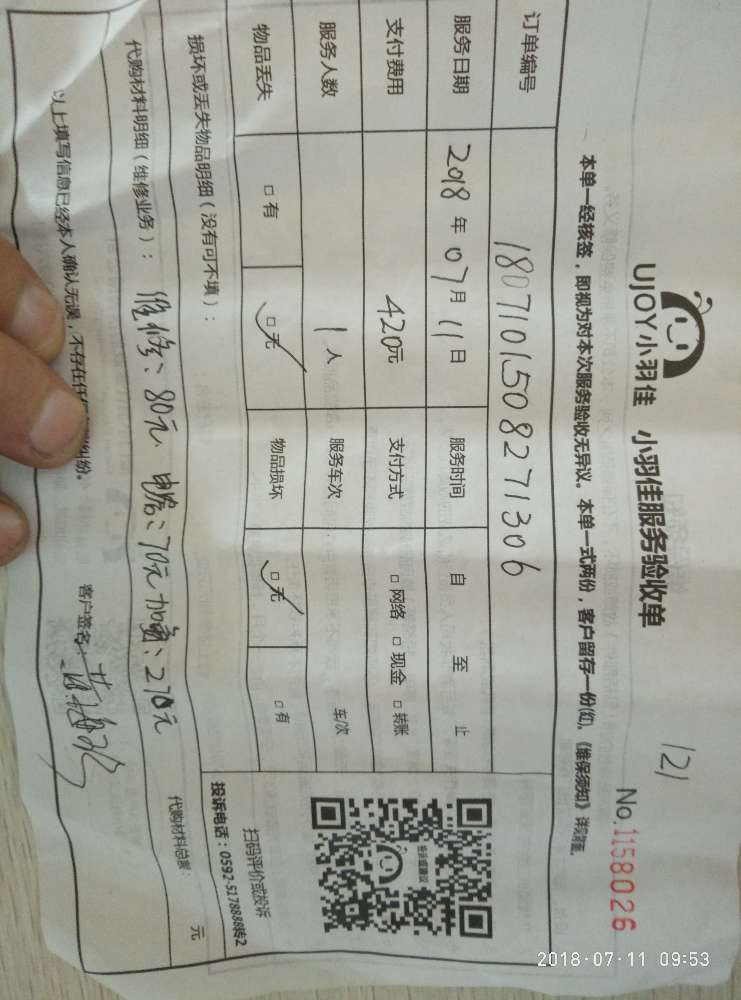 UJOY小羽佳 小羽佳服务验收单
121
No.1158026
本单一经核签，即视为对本次服务验收无异议。本单一式两份，客户留存一份(红)。《维保须知》详见背面。
订单编号 1807101508271306
服务日期 2018年07月11日 服务时间 自 至 止
支付费用 420元 支付方式 □网络 □现金 □转账
服务人数 1人 服务车次 车/次
物品丢失 □有 □无 物品损坏 □无 □有
扫码评价或投诉
投诉电话：0592-5178888转2
损坏或丢失物品明细（没有可不填）：
代购材料明细（维修业务）：维修：80元 电容：70元 加氟：270元
代购材料总额： 元
以上填写信息已经本人确认无误，不存在任 纠纷。 客户签名：
2018-07-11 09:53